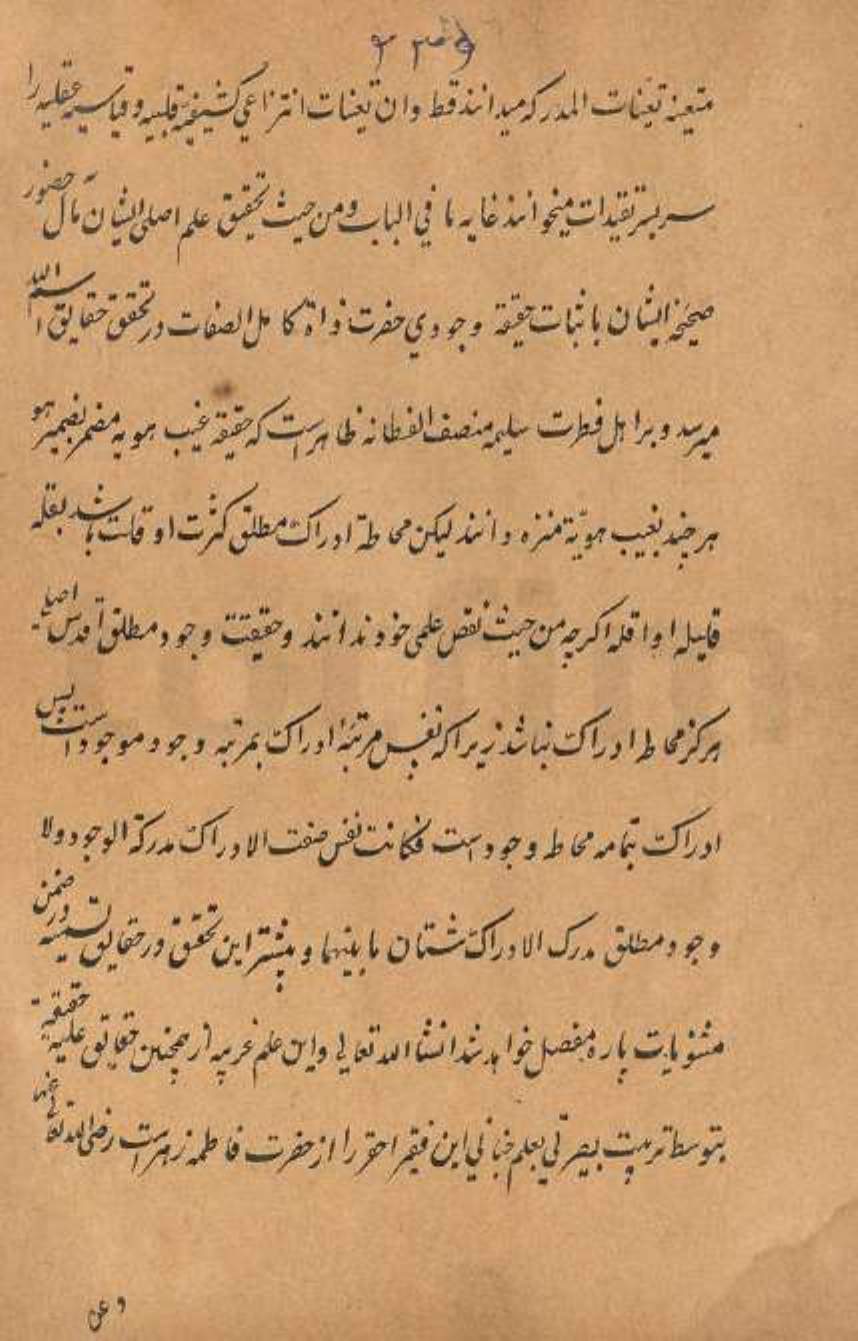 متعینه تعینات المدرکه میدانند قط وان تعینات انتزاعی کشیفیه قلبیه و قیاسیه عقلیه را
سربسر تقیدات میخوانند غایه ما فی الباب ومن حیث تحقیق علم اصلی ایشان مآل حضور
صحیحه ایشان باثبات حقیقة وجودی حضرت ذواة کامل الصفات در تحقق حقایق اسم الله
میرسد و بر اهل فطرت سلیمه منصف الفطانه ظاهر است که حقیقه غیب هویه مضمر بضمیر هو
هر چند بغیب هویّة منزه دانند لیکن محاطة ادراک مطلق کثرت او قلت باشد بقله
قلیله او اقله اکرچه من حیث نقص علمی خود ندانند و حقیقت وجود مطلق اقدس اصلا
هرکز محاط ادراک نباشد زیرا که نفس مرتبهٔ ادراک بمرتبه وجود موجود است پس
ادراک بتمامه محاط وجود است فکانت نفس صفت الادراک مدرکة الوجود ولا
وجود مطلق مدرک الادراک شتان ما بینهما و بیشتر این تحقق در حقایق در ضمن
مثنویات پاره مفصل خواهد شد انشا الله تعالی و این علم غریبه از همچنین حقایق علیه حقیقیة
بتوسط تربیت بعلم این فقیر احقر را از حضرت فاطمه زهراست رضی الله تعالی عنها
وعن